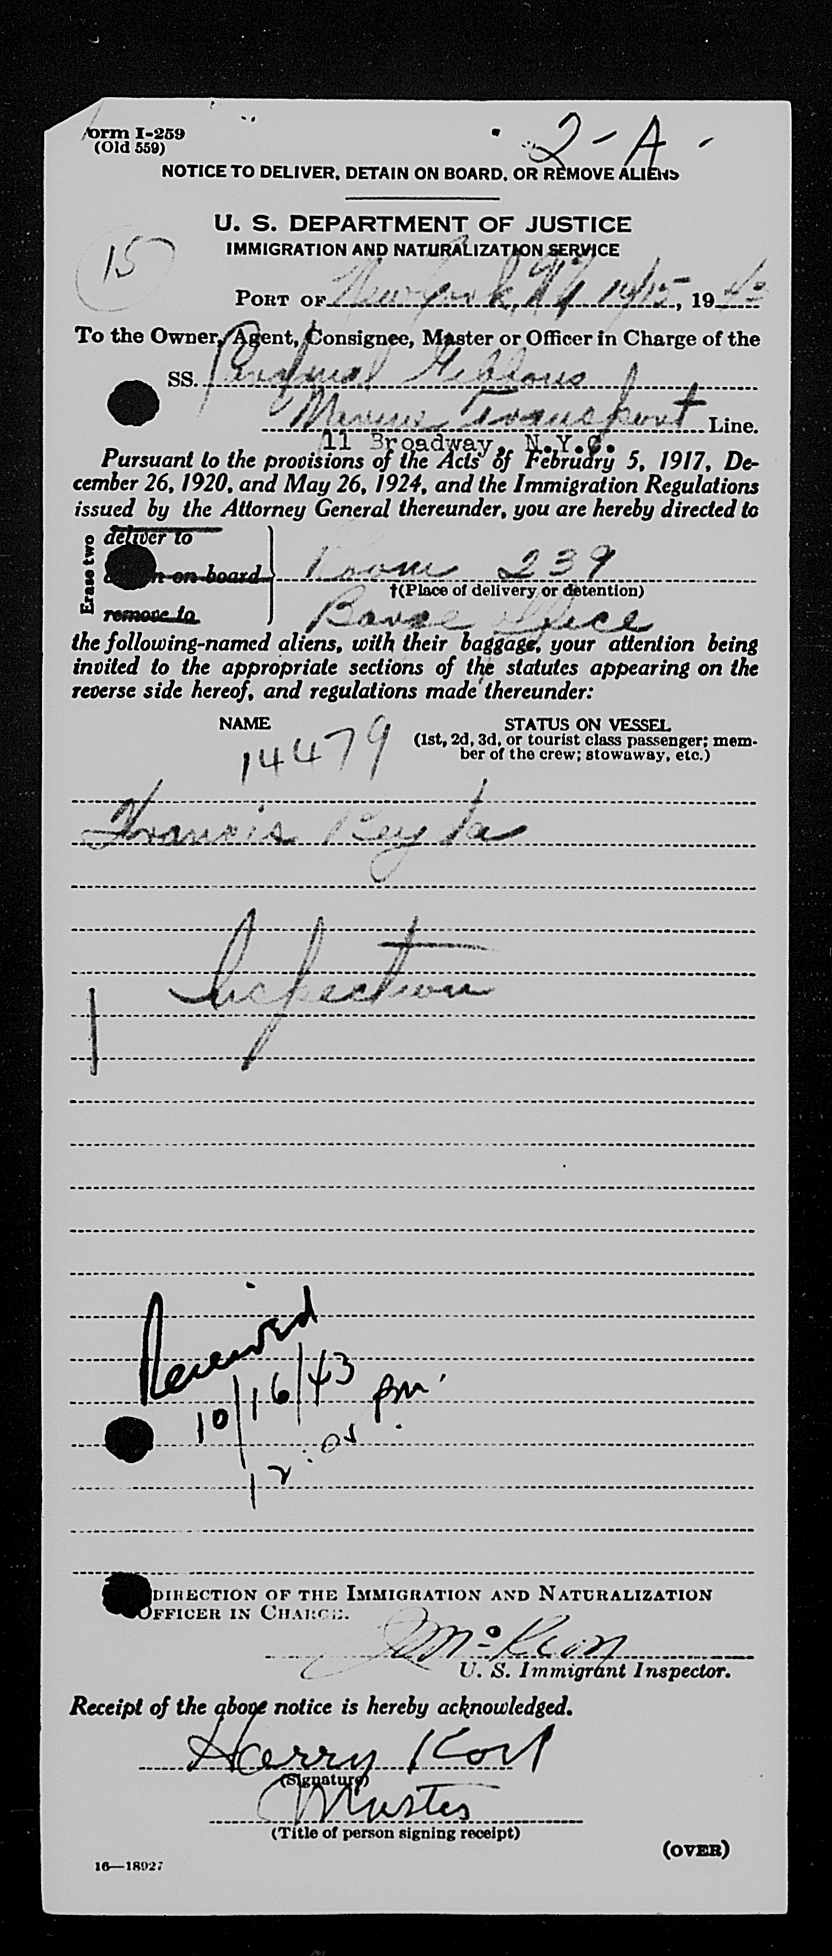 Form I-259
(Old 559)
2-A-
NOTICE TO DELIVER, DETAIN ON BOARD, OR REMOVE ALIENS
U. S. DEPARTMENT OF JUSTICE
IMMIGRATION AND NATURALIZATION SERVICE
15
PORT OF New York, NY 10/15, 1943
To the Owner, Agent, Consignee, Master or Officer in Charge of the
SS. Cardinal Gibbons
Marine Transport Line.
11 Broadway, N.Y.C.
Pursuant to the provisions of the Acts of February 5, 1917, De-
cember 26, 1920, and May 26, 1924, and the Immigration Regulations
issued by the Attorney General thereunder, you are hereby directed to
Erase two
deliver to
n on board
remove to
Room 239
†(Place of delivery or detention)
Barge Office
the following-named aliens, with their baggage, your attention being
invited to the appropriate sections of the statutes appearing on the
reverse side hereof, and regulations made thereunder:
NAME
STATUS ON VESSEL
(1st, 2d, 3d, or tourist class passenger; mem-
ber of the crew; stowaway, etc.)
14479
Francis
Inspection
Received
10/16/43
12:05 pm.
DIRECTION OF THE IMMIGRATION AND NATURALIZATION
OFFICER IN CHARGE.
U. S. Immigrant Inspector.
Receipt of the above notice is hereby acknowledged.
Harry
(Signature)
Master
(Title of person signing receipt)
(OVER)
16—18927